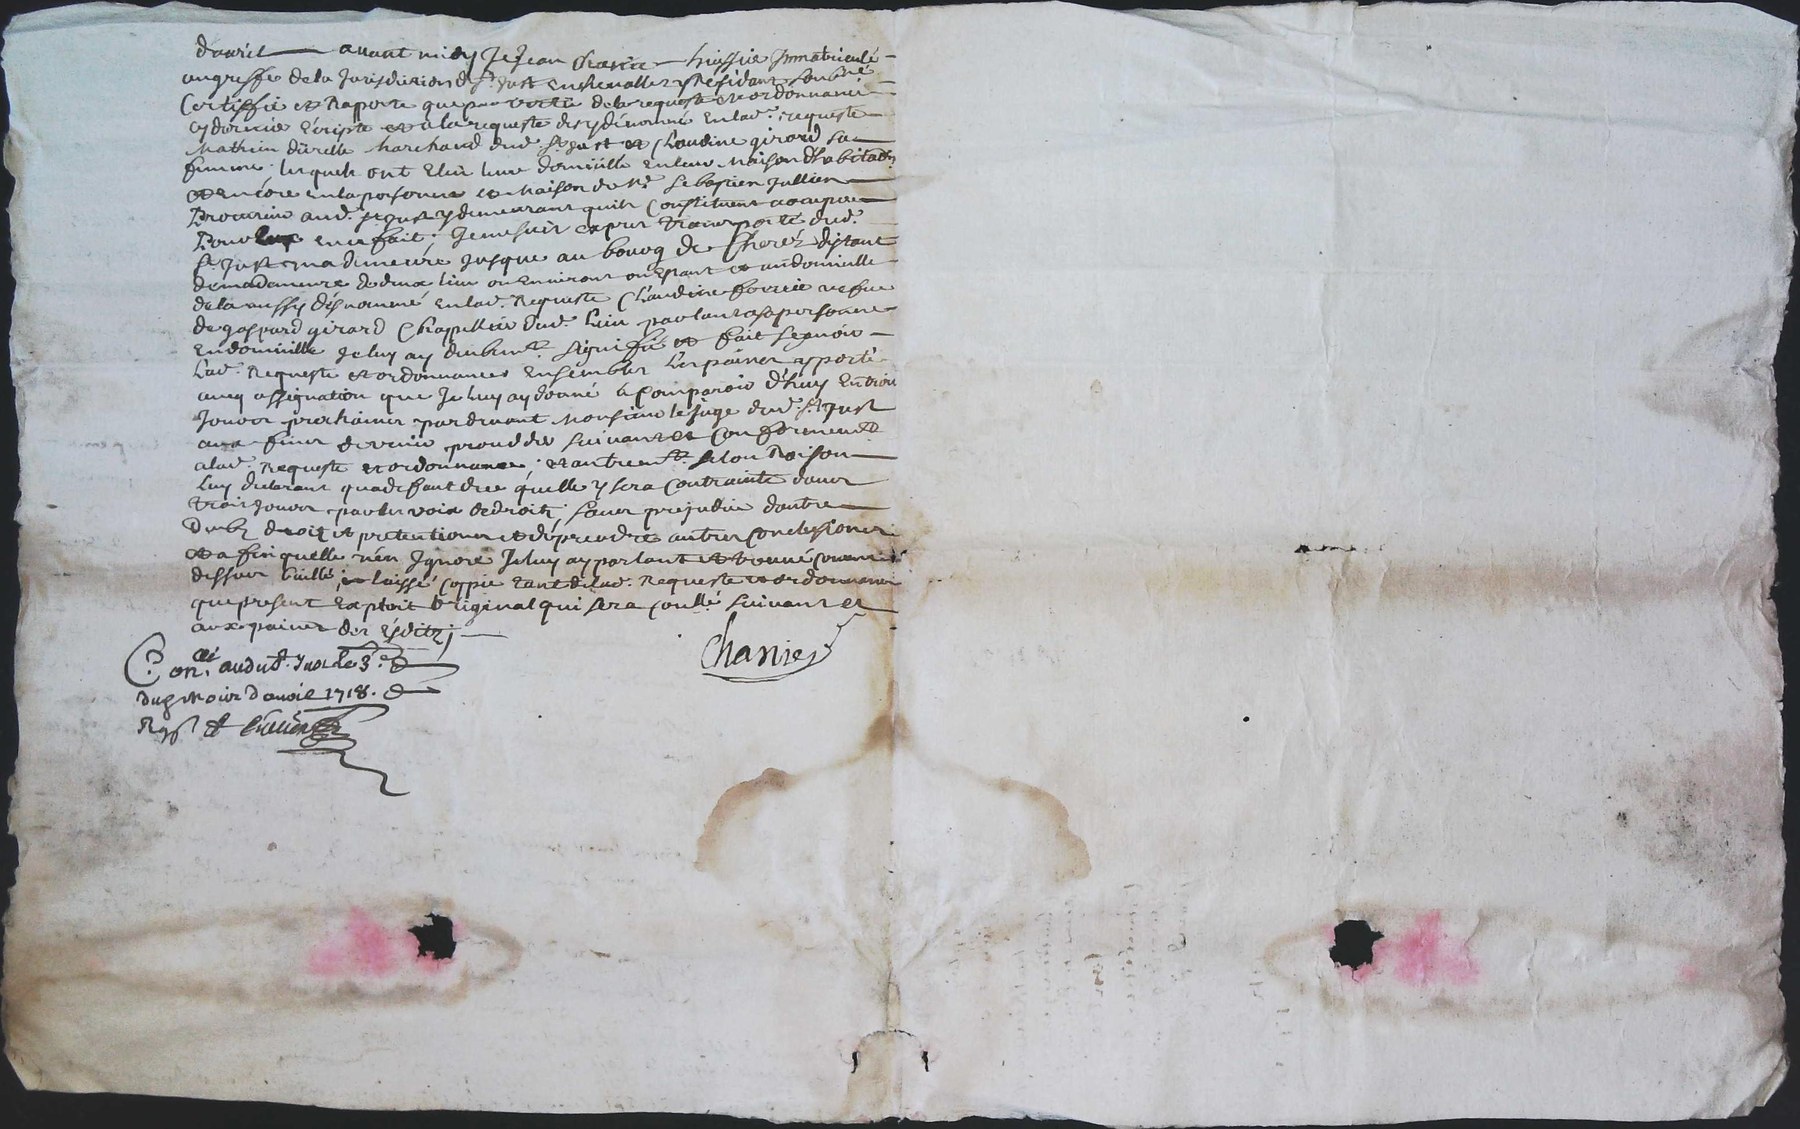 d'avril — avant midy Je Jean Chanie huissie Immatriculé
au greffe de la Jurisdicion de St Just en chevallet y Résidant soubné
Certiffie et Raporte que par vertu de la requeste et ordonnance
cy derrie Ecripte et a la requeste des y dénommé en lad. requeste
Mathieu durelle Marchand dud. St Just et Claudine girard sa
femme, lesquels ont Eleu leur domicille en leur Maison d'habitaon
et encore en la personne et Maison de Me Sebastien Jullien
Procureur aud. St Just y demeurant quils Constituent
Pour Eux en ce fait, Je me suis exprès transporté dud.
St Just ma demeure Jusque au bourg de Cherez distant
de ma demeure de deux lieu ou Environt ou Estant et au domicille
de la aussy dénommé en lad. Requeste Claudine vefve
de gaspard girard Chapellier dud. Lieu parlant a sa personne
En domicille Je luy ay deubemt. signifié et fait sçavoir
Lad. Requeste et ordonnances Ensembles Les peines y porté
avec assignation que Je luy ay donné a Comparoir d'huy En trois
Jours prochaines pardevant Monsieur le Juge dud. St Just
aux fines de venir proceddé suivant et Conformement
a lad. Requeste et ordonnance, et autremt. selon Raison
Luy declarant qua deffaut dee quelle y sera Contrainte dans
trois Jours par les voix de droit, sauf préjudice dautre
Deubz droitz et pretentiones et dy prendre autres Conclusiones
et a fin quelle n'en Ignore Je luy ay parlant et donné comme
dessus baillé, et laissé Coppie tant de lad. Requeste et ordonnance
que present Exploit Original qui sera Conllé suivant et
aux peines des Esditz ;
Chanies
Conlé audit St. Just le 3e
Dud Mois Davril 1718.